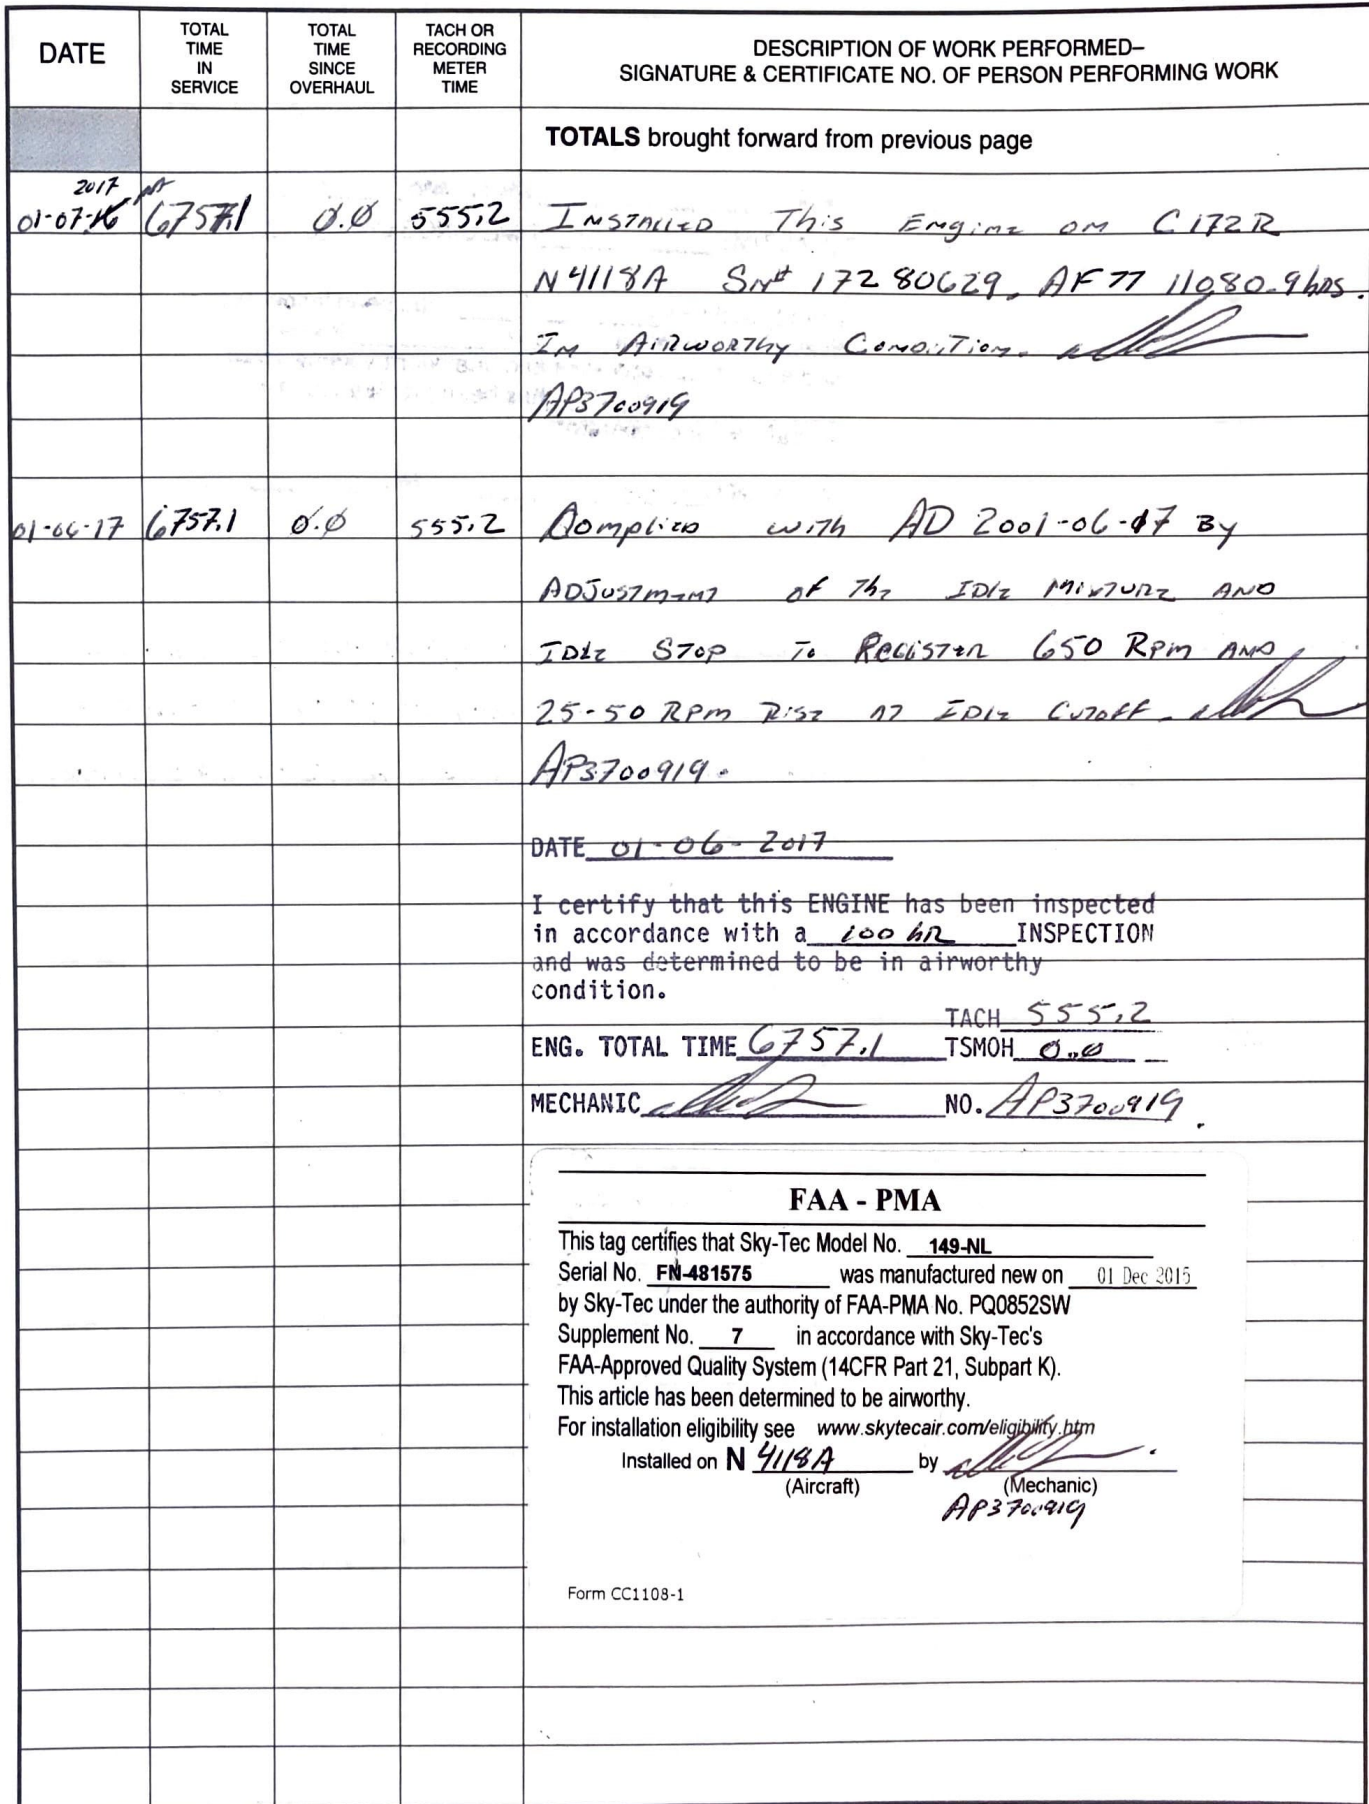 DATE
TOTAL TIME IN SERVICE
TOTAL TIME SINCE OVERHAUL
TACH OR RECORDING METER TIME
DESCRIPTION OF WORK PERFORMED–
SIGNATURE & CERTIFICATE NO. OF PERSON PERFORMING WORK
TOTALS brought forward from previous page
2017
01-07-16 6757.1 0.0 555.2 INSTALLED This Engine on C172R
N4118A SN# 17280629, AFTT 11080.9 hrs.
In AIRWORTHY Condition.
AP3700919
01-06-17 6757.1 0.0 555.2 Complied with AD 2001-06-17 By
ADJUSTMENT of The IDLE MIXTURE AND
IDLE STOP To REGISTER 650 RPM AND
25-50 RPM RISE AT IDLE CUTOFF.
AP3700919.
DATE 01-06-2017
I certify that this ENGINE has been inspected
in accordance with a 100 hR INSPECTION
and was determined to be in airworthy
condition.
TACH 555.2
ENG. TOTAL TIME 6757.1 TSMOH 0.0
MECHANIC NO. AP3700919
FAA - PMA
This tag certifies that Sky-Tec Model No. 149-NL
Serial No. FN-481575 was manufactured new on 01 Dec 2015
by Sky-Tec under the authority of FAA-PMA No. PQ0852SW
Supplement No. 7 in accordance with Sky-Tec's
FAA-Approved Quality System (14CFR Part 21, Subpart K).
This article has been determined to be airworthy.
For installation eligibility see www.skytecair.com/eligibility.htm
Installed on N 4118A by
(Aircraft) (Mechanic)
AP3700919
Form CC1108-1